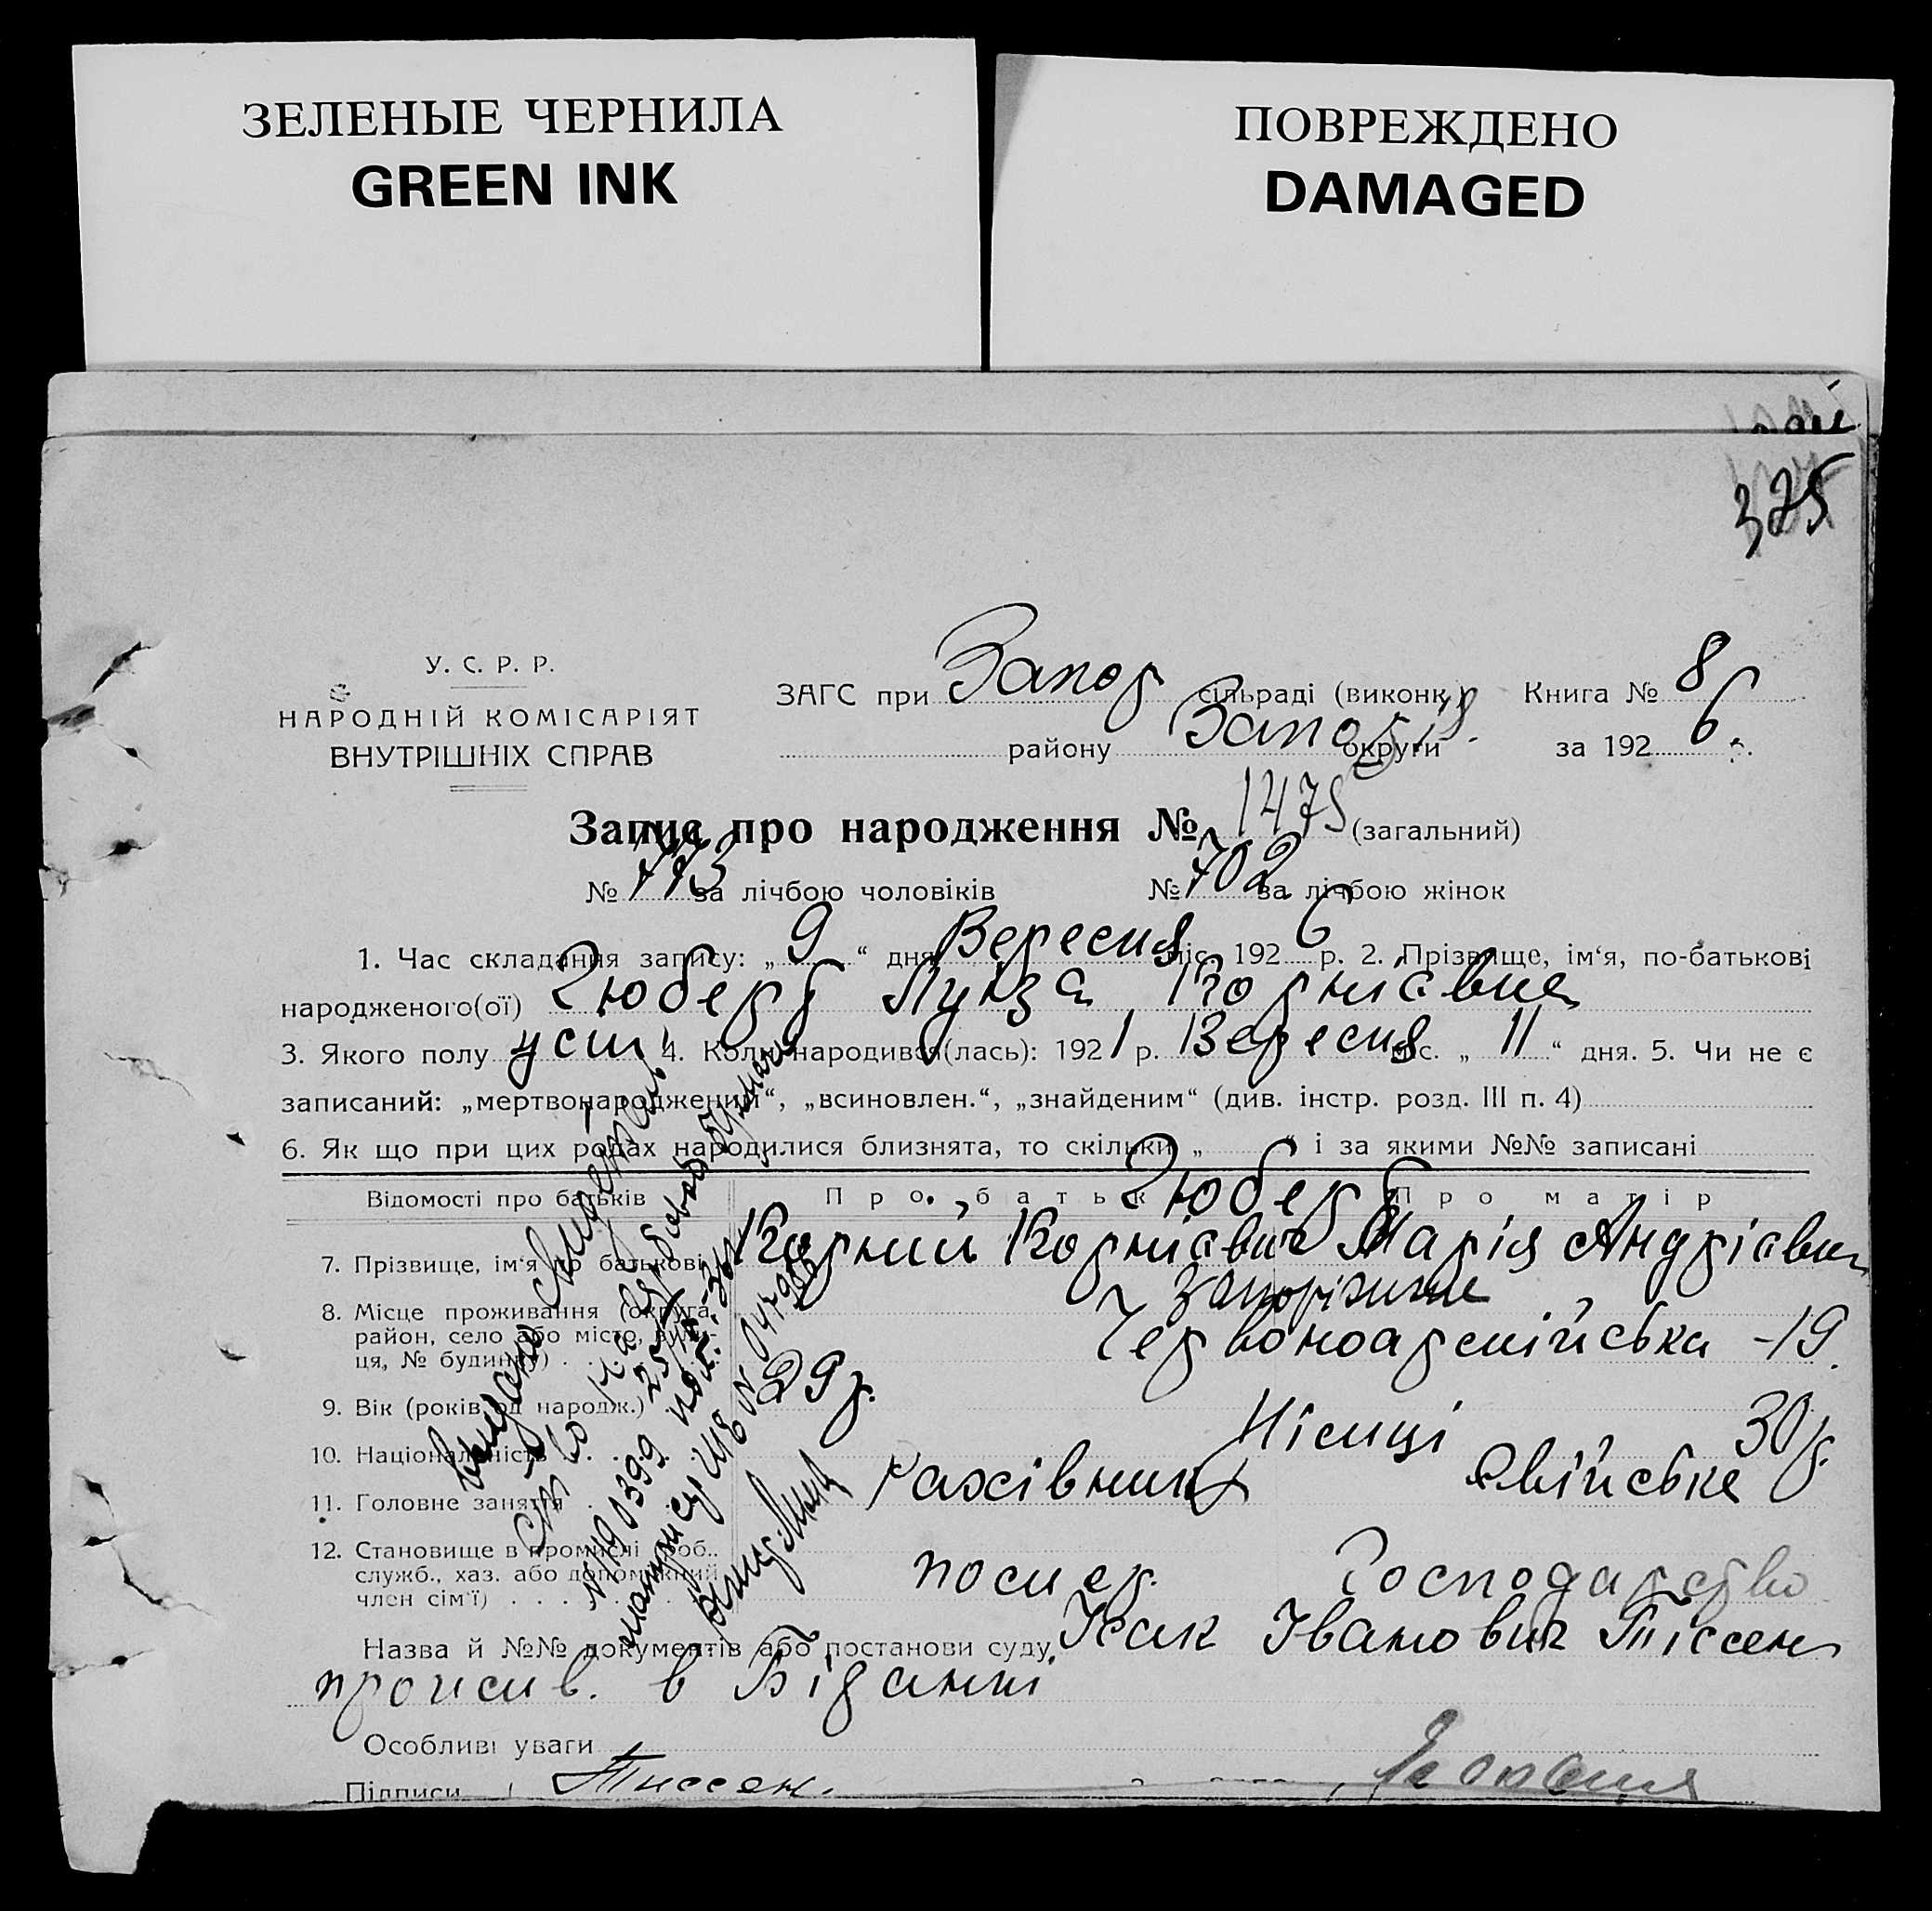 ЗЕЛЕНЫЕ ЧЕРНИЛА
GREEN INK
ПОВРЕЖДЕНО
DAMAGED
325
У. С. Р. Р.
НАРОДНІЙ КОМІСАРІЯТ
ВНУТРІШНІХ СПРАВ
ЗАГС при Запор сільраді (виконк.) Книга № 8
району Запоріз. округи за 1926 р.
Запис про народження № 1475 (загальний)
№ 773 за лічбою чоловіків № 702 за лічбою жінок
1. Час складання запису: „9“ дня Вересня міс. 1926 р. 2. Прізвище, ім‘я, по-батькові
народженого(ої) Гюберт Луіза Корніївна
3. Якого полу 4. Коли народився(лась): 1921 р. Вересня міс. „11“ дня. 5. Чи не є
записаний: „мертвонародженим“, „всиновлен.“, „знайденим“ (див. інстр. розд. III п. 4)
6. Як що при цих родах народилися близнята, то скільки „ “ і за якими №№ записані
Відомості про батьків Про батька Про матір
Гюберт
7. Прізвище, ім‘я по батькові Корний Корнієвич Марія Андріївна
8. Місце проживання (округа, район, село або місто, вулиця, № будинку) Запоріжжя
Червоноармійська -19.
9. Вік (років од народж.) 29 р. 30 р.
10. Національність Німці
11. Головне заняття рахівник Свійське
12. Становище в промислі (роб., служб., хаз. або допоміжний член сім‘ї) Господарство
Назва й №№ документів або постанови суду Ісак Іванович Тіссен
прожив. в
Особливі уваги
Підписи Тиссен.